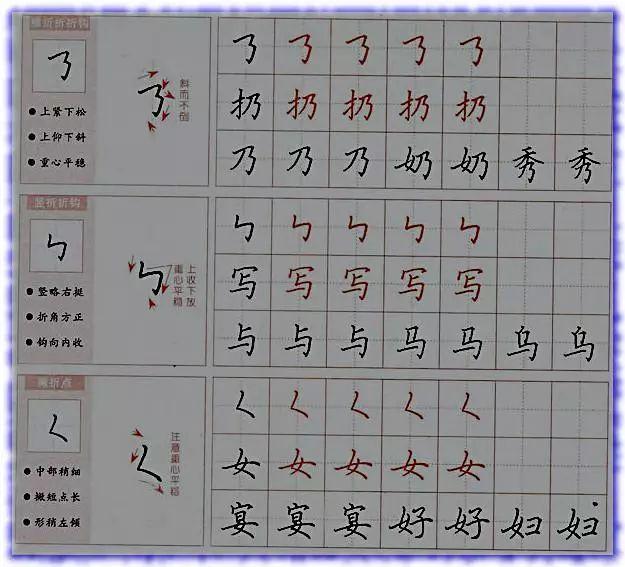 横折折折钩
斜而不倒
上紧下松
上仰下斜
重心平稳
扔 扔 扔 扔 扔
乃 乃 乃 奶 奶 秀 秀
竖折折钩
上收下放
重心平稳
竖略右挺
折角方正
钩向内收
ㄣ ㄣ ㄣ ㄣ ㄣ ㄣ ㄣ
写 写 写 写 写
与 与 与 马 马 乌 乌
撇折点
注意重心平稳
中部稍细
撇短点长
形稍左倾
く く く く く く く
女 女 女 女 女
宴 宴 宴 好 好 妇 妇